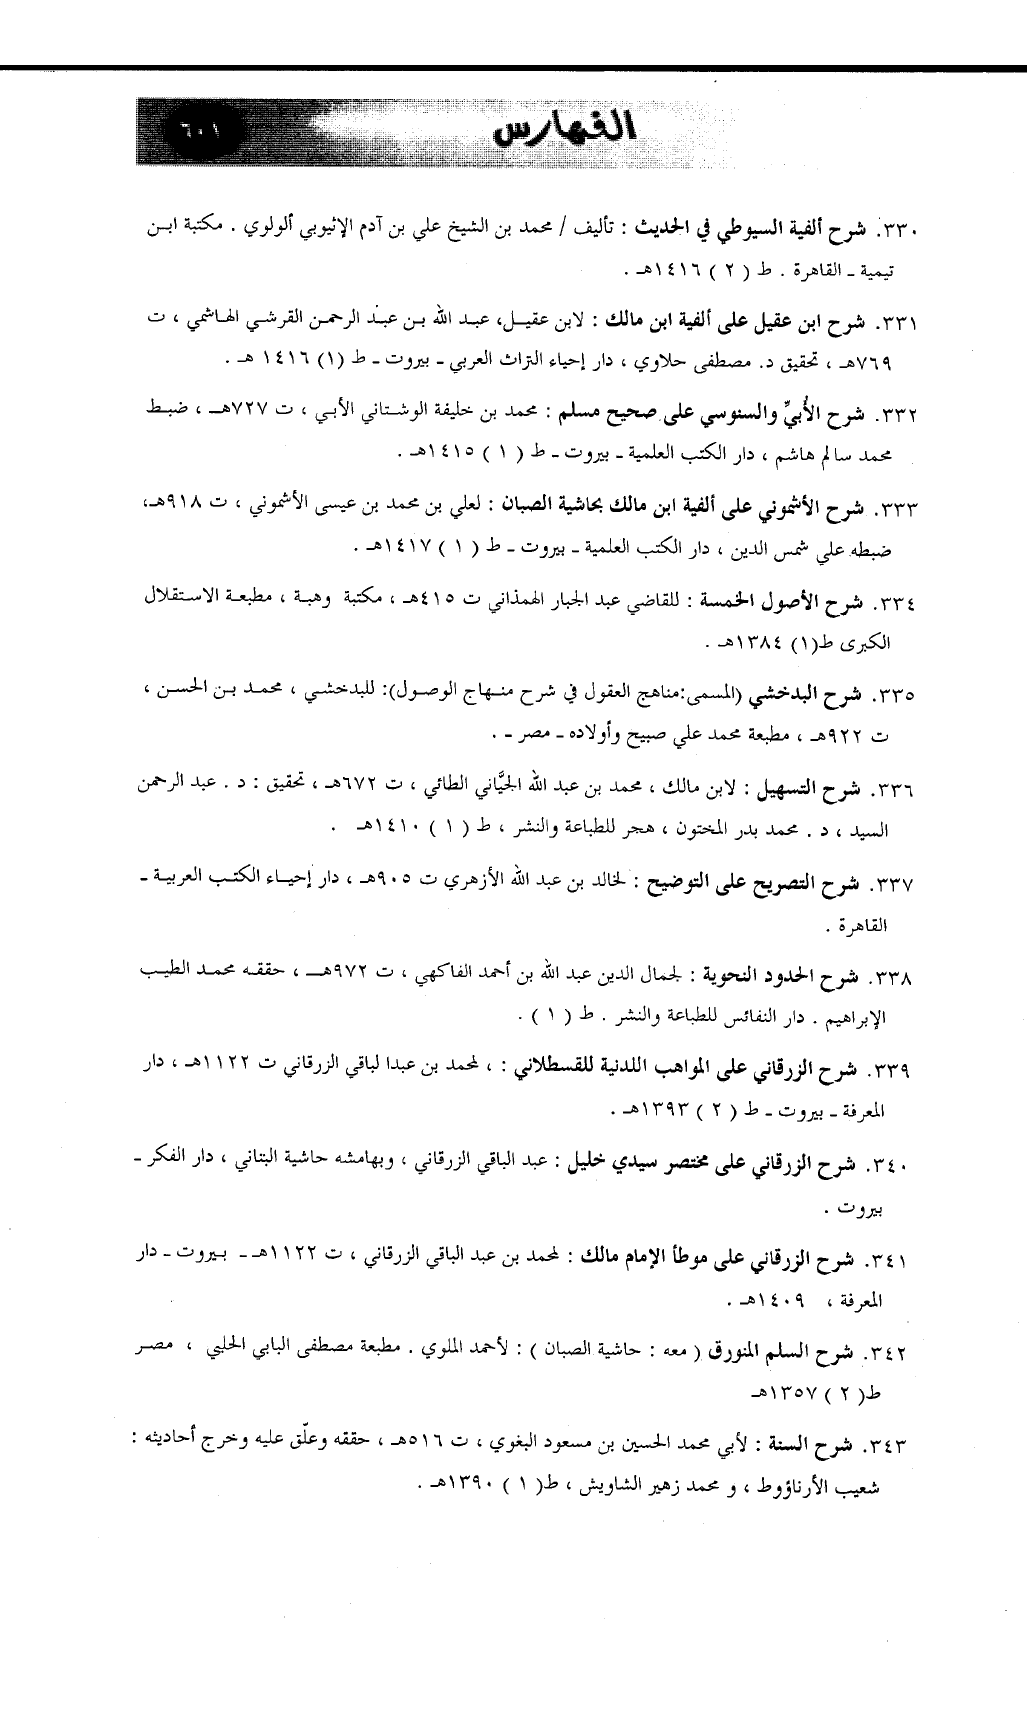 الفهارس
٦٠١
٣٣٠. شرح ألفية السيوطي في الحديث : تأليف / محمد بن الشيخ علي بن آدم الإثيوبي ألولوي . مكتبة ابن
تيمية ـ القاهرة . ط ( ٢ ) ١٤١٦هـ .
٣٣١. شرح ابن عقيل على ألفية ابن مالك : لابن عقيل، عبد الله بن عبد الرحمن القرشي الهاشمي ، ت
٧٦٩هـ ، تحقيق د. مصطفى حلاوي ، دار إحياء التراث العربي ـ بيروت ـ ط (١) ١٤١٦ هـ .
٣٣٢. شرح الأُبيِّ والسنوسي على صحيح مسلم : محمد بن خليفة الوشتاني الأبي ، ت ٧٢٧هـ ، ضبط
محمد سالم هاشم ، دار الكتب العلمية ـ بيروت ـ ط ( ١ ) ١٤١٥هـ .
٣٣٣. شرح الأشموني على ألفية ابن مالك بحاشية الصبان : لعلي بن محمد بن عيسى الأشموني ، ت ٩١٨هـ،
ضبطه علي شمس الدين ، دار الكتب العلمية ـ بيروت ـ ط ( ١ ) ١٤١٧هـ .
٣٣٤. شرح الأصول الخمسة : للقاضي عبد الجبار الهمذاني ت ٤١٥هـ ، مكتبة وهبة ، مطبعة الاستقلال
الكبرى ط(١) ١٣٨٤هـ .
٣٣٥. شرح البدخشي (المسمى:مناهج العقول في شرح منهاج الوصول): للبدخشي ، محمد بن الحسن ،
ت ٩٢٢هـ ، مطبعة محمد علي صبيح وأولاده ـ مصر ـ .
٣٣٦. شرح التسهيل : لابن مالك ، محمد بن عبد الله الجيَّاني الطائي ، ت ٦٧٢هـ ، تحقيق : د . عبد الرحمن
السيد ، د . محمد بدر المختون ، هجر للطباعة والنشر ، ط ( ١ ) ١٤١٠هـ .
٣٣٧. شرح التصريح على التوضيح : لخالد بن عبد الله الأزهري ت ٩٠٥هـ ، دار إحياء الكتب العربية ـ
القاهرة .
٣٣٨. شرح الحدود النحوية : لجمال الدين عبد الله بن أحمد الفاكهي ، ت ٩٧٢هـ ، حققه محمد الطيب
الإبراهيم . دار النفائس للطباعة والنشر . ط ( ١ ) .
٣٣٩. شرح الزرقاني على المواهب اللدنية للقسطلاني : ، لمحمد بن عبدا لباقي الزرقاني ت ١١٢٢هـ ، دار
المعرفة ـ بيروت ـ ط ( ٢ ) ١٣٩٣هـ .
٣٤٠. شرح الزرقاني على مختصر سيدي خليل : عبد الباقي الزرقاني ، وبهامشه حاشية البناني ، دار الفكر ـ
بيروت .
٣٤١. شرح الزرقاني على موطأ الإمام مالك : لمحمد بن عبد الباقي الزرقاني ، ت ١١٢٢هـ ـ بيروت ـ دار
المعرفة ، ١٤٠٩هـ .
٣٤٢. شرح السلم المنورق ( معه : حاشية الصبان ) : لأحمد الملوي . مطبعة مصطفى البابي الحلبي ، مصر
ط( ٢ ) ١٣٥٧هـ
٣٤٣. شرح السنة : لأبي محمد الحسين بن مسعود البغوي ، ت ٥١٦هـ ، حققه وعلّق عليه وخرج أحاديثه :
شعيب الأرناؤوط ، و محمد زهير الشاويش ، ط( ١ ) ١٣٩٠هـ .